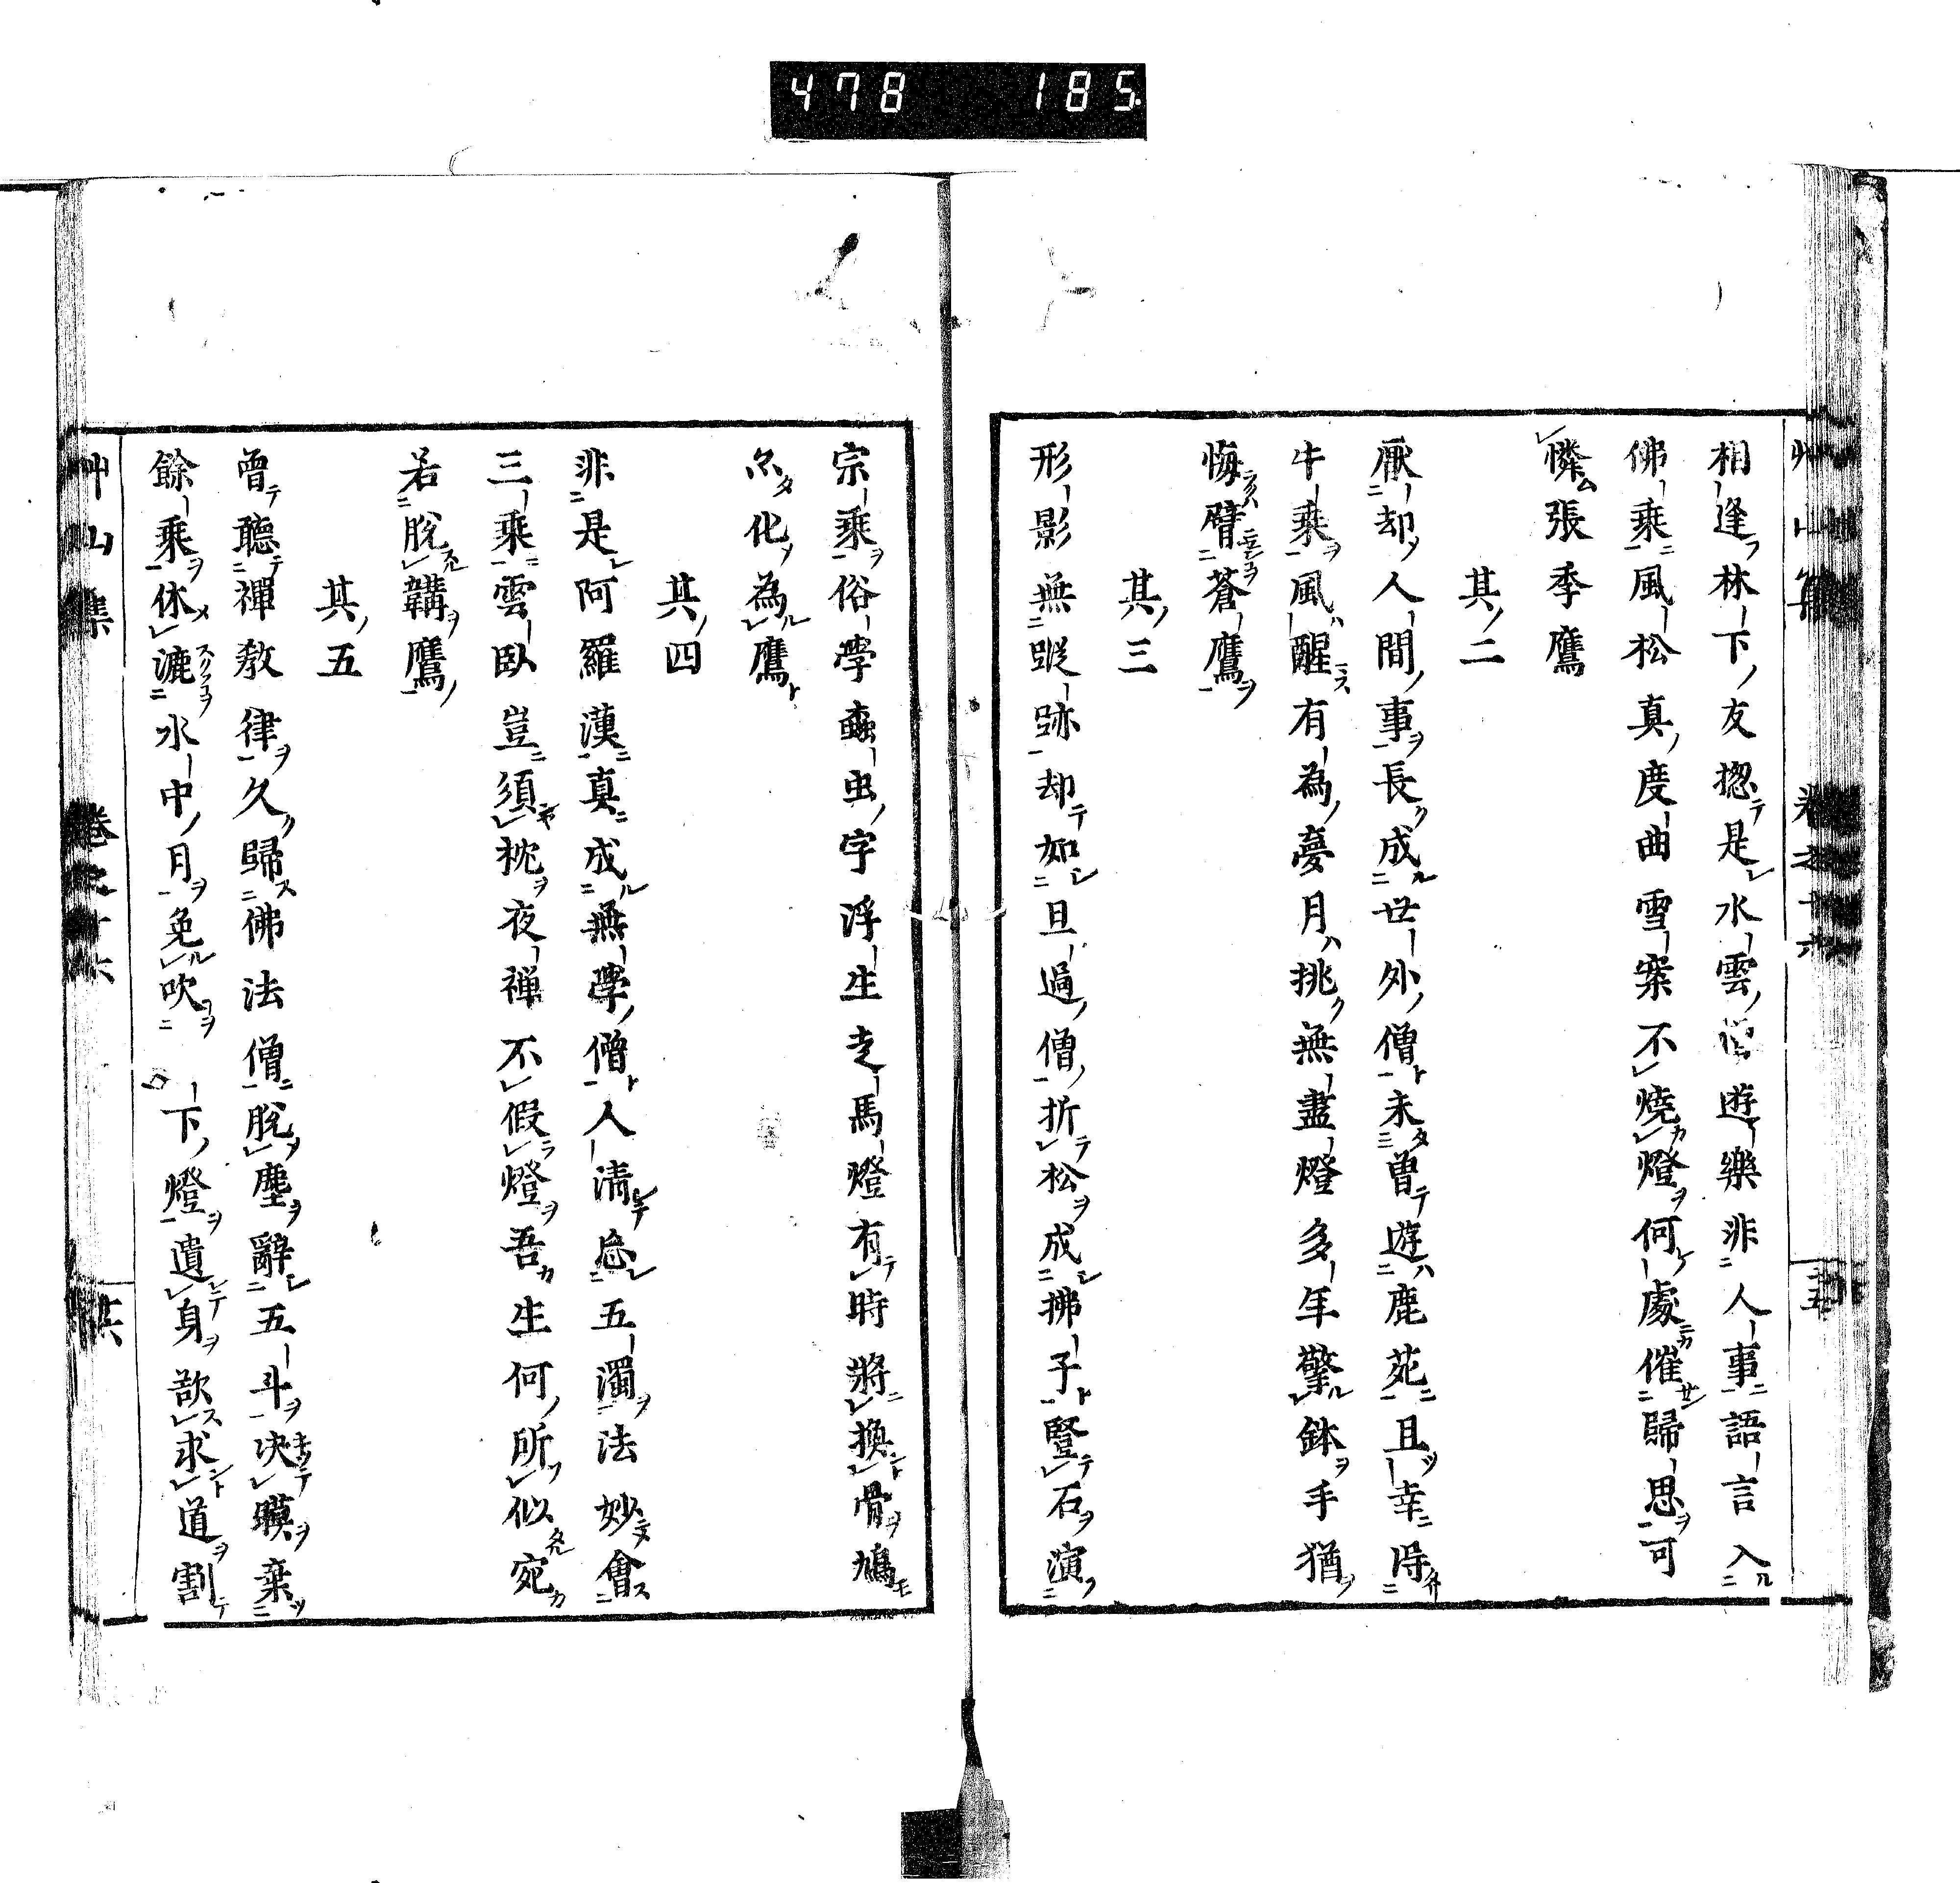 478 185
相逢林下友揔是水雲僧遊樂非人事語言入
佛乗風松真度曲雪案不燒燈何處催歸思可
憐張季鷹
其二
厭却人間事長成世外僧未曽遊鹿苑且幸得
牛乗風醒有為夢月挑無盡燈多年擎鉢手猶
悔臂蒼鷹
其三
形影無蹤跡却如旦過僧折松成拂子竪石演
宗乗俗學蟲虫字浮生走馬燈有時將換骨鳩
亦化為鷹
其四
非是阿羅漢真成無學僧人清忘五濁法妙會
三乗雲臥豈須枕夜禅不假燈吾生何所似宛
若脫韝鷹
其五
曽聽禪教律久歸佛法僧脫塵辭五斗决䁳棄
餘乗休漉水中月免吹下燈遺身欲求道割
艸山集 卷之十六